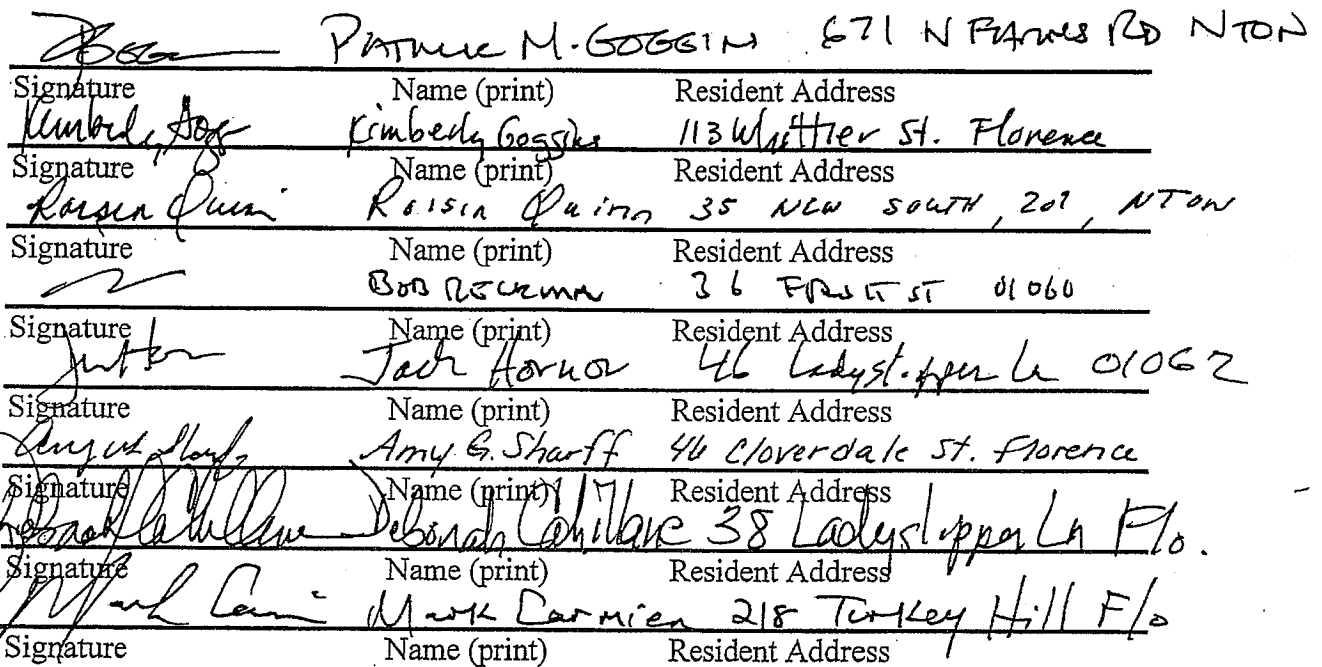 PATRICK M. GOGGIN 671 N FARMS RD NTON
Signature Name (print) Resident Address
Kimberly Goggins 113 Whittier St. Florence
Signature Name (print) Resident Address
Roisin Quinn Roisin Quinn 35 NEW SOUTH, 207, NTON
Signature Name (print) Resident Address
BOB RECKMAN 36 FRUIT ST 01060
Signature Name (print) Resident Address
Jack Hornor 46 Ladyslipper Ln 01062
Signature Name (print) Resident Address
Amy G. Sharff 46 Cloverdale St. Florence
Signature Name (print) Resident Address
Deborah Cahillane Deborah Cahillane 38 Ladyslipper Ln Flo.
Signature Name (print) Resident Address
Mark Carmien 218 Turkey Hill Flo
Signature Name (print) Resident Address